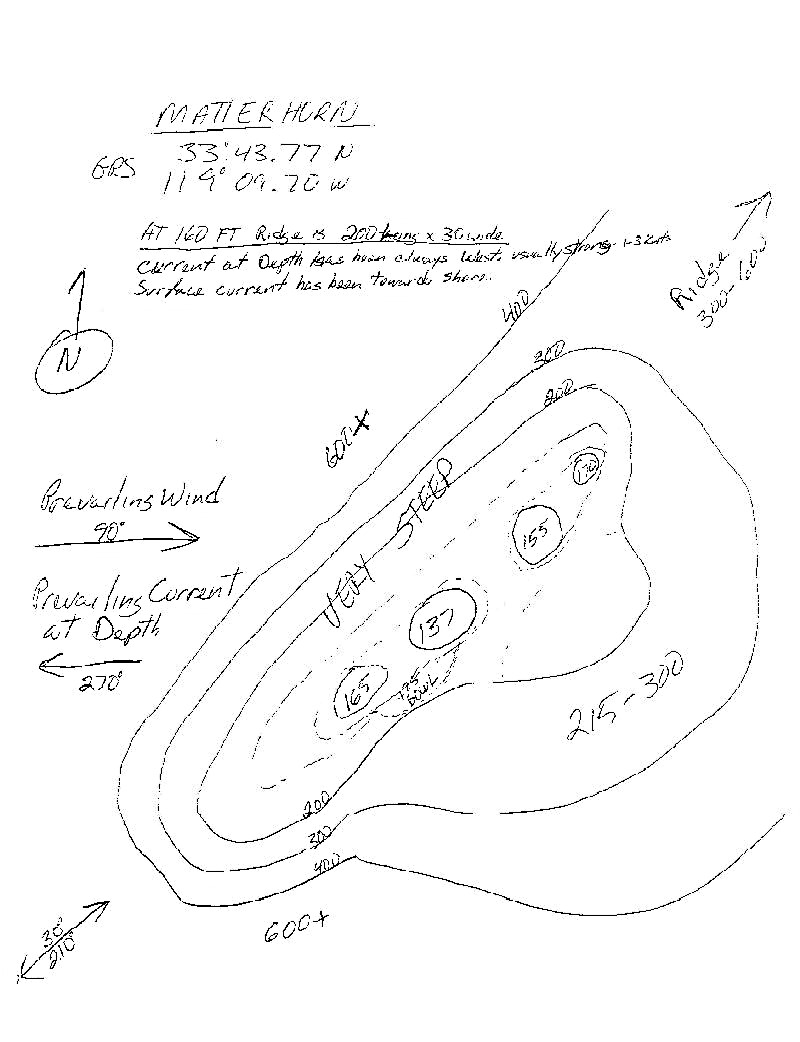 MATTERHORN
GPS 33° 43.77 N
119° 09.70 W
AT 160 FT Ridge is 200 long x 30 wide
Current at Depth has been always West. usually strong 1-3 knts
Surface current has been towards shore.
Ridge
300-600
N
400
300
200
600+
170
VERY STEEP
155
Prevailing Wind
90°
137
Prevailing Current
at Depth
270°
165
175
BOWL
215-300
200
300
400
600+
30°
210°